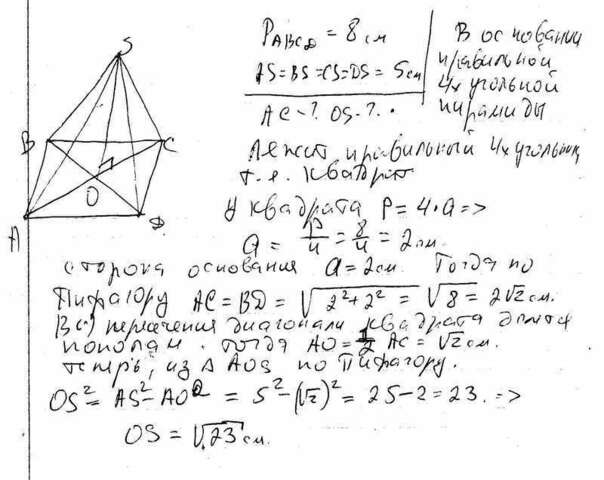 S
B
C
O
A
D
P_ABCD = 8 см
AS=BS=CS=DS= 5см
AC-? OS-?.
В основании
правильной
4х угольной
пирамиды
лежит правильный 4х угольник
т.е. квадрат
У квадрата P = 4·a =>
a = P/4 = 8/4 = 2см.
сторона основания a = 2см. Тогда по
Пифагору AC = BD = √2²+2² = √8 = 2√2 см.
В(·) пересечения диагонали квадрата делятся
пополам. тогда AO = 1/2 AC = √2 см.
теперь, из Δ AOS по Пифагору.
OS² = AS² - AO² = 5² - (√2)² = 25 - 2 = 23. =>
OS = √23 см.